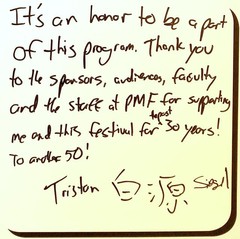 It's an honor to be a part
of this program. Thank you
to the sponsors, audiences, faculty
and the staff at PMF for supporting
me and this festival for the past 30 years!
To another 50!
Tristan 白源 Siegel